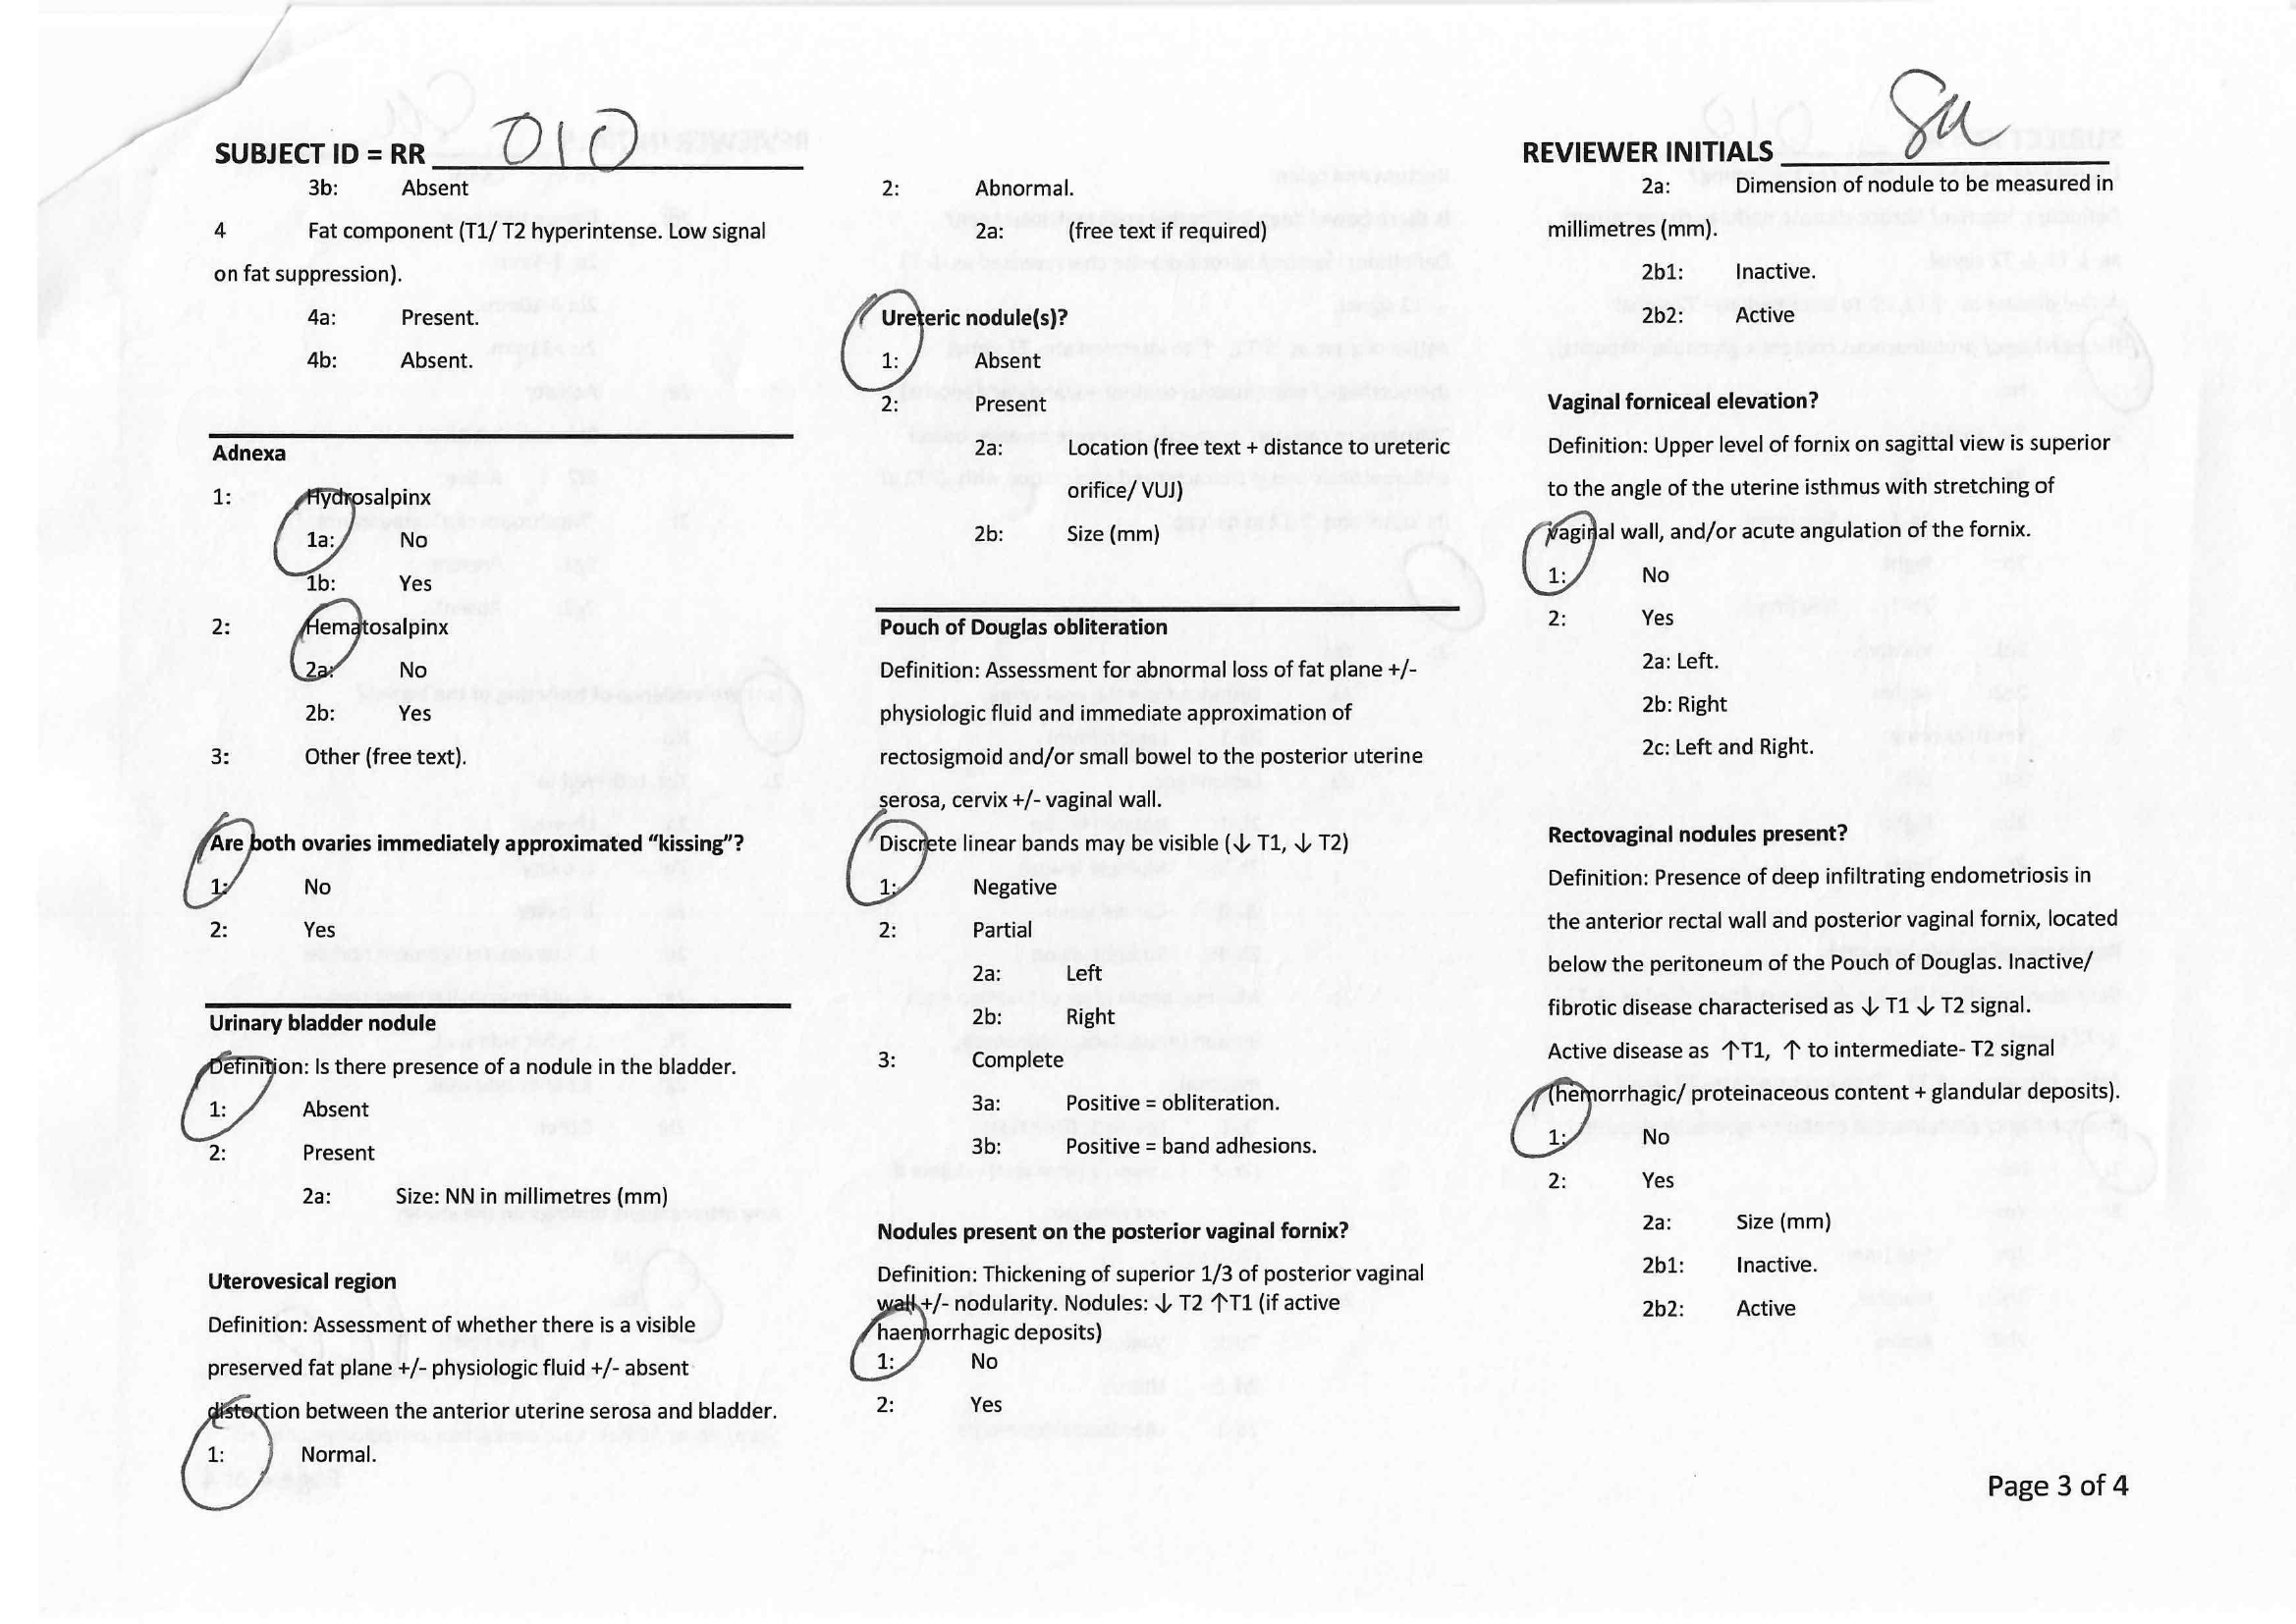 SUBJECT ID = RR 010
REVIEWER INITIALS
3b: Absent
4 Fat component (T1/ T2 hyperintense. Low signal
on fat suppression).
4a: Present.
4b: Absent.
Adnexa
1: Hydrosalpinx
1a: No
1b: Yes
2: Hematosalpinx
2a: No
2b: Yes
3: Other (free text).
Are both ovaries immediately approximated “kissing”?
1: No
2: Yes
Urinary bladder nodule
Definition: Is there presence of a nodule in the bladder.
1: Absent
2: Present
2a: Size: NN in millimetres (mm)
Uterovesical region
Definition: Assessment of whether there is a visible
preserved fat plane +/- physiologic fluid +/- absent
distortion between the anterior uterine serosa and bladder.
1: Normal.
2: Abnormal.
2a: (free text if required)
Ureteric nodule(s)?
1: Absent
2: Present
2a: Location (free text + distance to ureteric
orifice/ VUJ)
2b: Size (mm)
Pouch of Douglas obliteration
Definition: Assessment for abnormal loss of fat plane +/-
physiologic fluid and immediate approximation of
rectosigmoid and/or small bowel to the posterior uterine
serosa, cervix +/- vaginal wall.
Discrete linear bands may be visible (↓ T1, ↓ T2)
1: Negative
2: Partial
2a: Left
2b: Right
3: Complete
3a: Positive = obliteration.
3b: Positive = band adhesions.
Nodules present on the posterior vaginal fornix?
Definition: Thickening of superior 1/3 of posterior vaginal
wall +/- nodularity. Nodules: ↓ T2 ↑T1 (if active
haemorrhagic deposits)
1: No
2: Yes
2a: Dimension of nodule to be measured in
millimetres (mm).
2b1: Inactive.
2b2: Active
Vaginal forniceal elevation?
Definition: Upper level of fornix on sagittal view is superior
to the angle of the uterine isthmus with stretching of
vaginal wall, and/or acute angulation of the fornix.
1: No
2: Yes
2a: Left.
2b: Right
2c: Left and Right.
Rectovaginal nodules present?
Definition: Presence of deep infiltrating endometriosis in
the anterior rectal wall and posterior vaginal fornix, located
below the peritoneum of the Pouch of Douglas. Inactive/
fibrotic disease characterised as ↓ T1 ↓ T2 signal.
Active disease as ↑T1, ↑ to intermediate- T2 signal
(hemorrhagic/ proteinaceous content + glandular deposits).
1: No
2: Yes
2a: Size (mm)
2b1: Inactive.
2b2: Active
Page 3 of 4